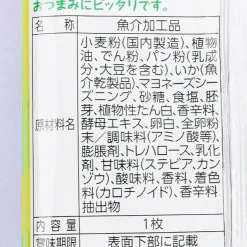 おつまみにピッタリです。
名称 魚介加工品
小麦粉(国内製造)、植物
油、でん粉、パン粉(乳成
分・大豆を含む)、いか(魚
介乾製品)、マヨネーズシー
ズニング、砂糖、食塩、胚
芽、植物性たん白、香辛料、
原材料名 酵母エキス、卵白、全卵粉
末/調味料(アミノ酸等)、
膨脹剤、トレハロース、乳化
剤、甘味料(ステビア、カン
ゾウ)、酸味料、香料、着色
料(カロチノイド)、香辛料
抽出物
内容量 1枚
賞味期限 表面下部に記載